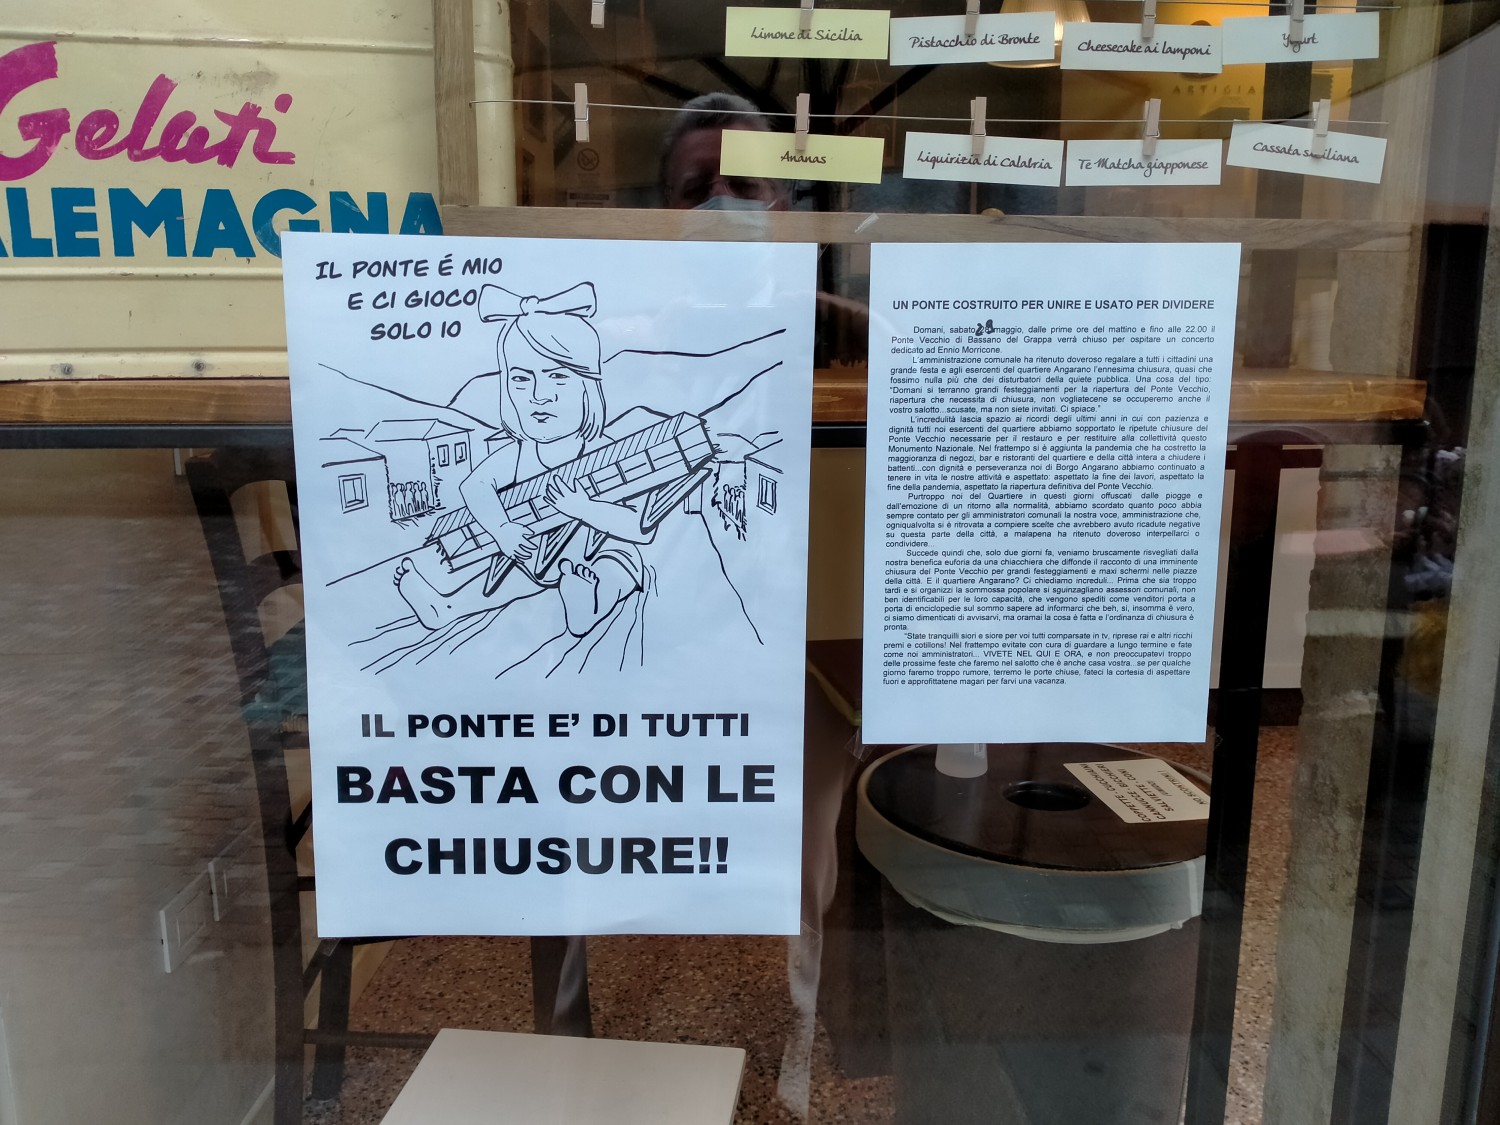 Gelati
ALEMAGNA
Limone di Sicilia
Pistacchio di Bronte
Cheesecake ai lamponi
Yogurt
ARTIGIA
Ananas
Liquirizia di Calabria
Te Matcha giapponese
Cassata siciliana
IL PONTE É MIO
E CI GIOCO
SOLO IO
IL PONTE E' DI TUTTI
BASTA CON LE
CHIUSURE!!
UN PONTE COSTRUITO PER UNIRE E USATO PER DIVIDERE
Domani, sabato 29 maggio, dalle prime ore del mattino e fino alle 22.00 il
Ponte Vecchio di Bassano del Grappa verrà chiuso per ospitare un concerto
dedicato ad Ennio Morricone.
L'amministrazione comunale ha ritenuto doveroso regalare a tutti i cittadini una
grande festa e agli esercenti del quartiere Angarano l'ennesima chiusura, quasi che
fossimo nulla più che dei disturbatori della quiete pubblica. Una cosa del tipo:
"Domani si terranno grandi festeggiamenti per la riapertura del Ponte Vecchio,
riapertura che necessita di chiusura, non vogliatecene se occuperemo anche il
vostro salotto...scusate, ma non siete invitati. Ci spiace."
L'incredulità lascia spazio ai ricordi degli ultimi anni in cui con pazienza e
dignità tutti noi esercenti del quartiere abbiamo sopportato le ripetute chiusure del
Ponte Vecchio necessarie per il restauro e per restituire alla collettività questo
Monumento Nazionale. Nel frattempo si è aggiunta la pandemia che ha costretto la
maggioranza di negozi, bar e ristoranti del quartiere e della città intera a chiudere i
battenti...con dignità e perseveranza noi di Borgo Angarano abbiamo continuato a
tenere in vita le nostre attività e aspettato: aspettato la fine dei lavori, aspettato la
fine della pandemia, aspettato la riapertura definitiva del Ponte Vecchio.
Purtroppo noi del Quartiere in questi giorni offuscati dalle piogge e
dall'emozione di un ritorno alla normalità, abbiamo scordato quanto poco abbia
sempre contato per gli amministratori comunali la nostra voce, amministrazione che,
ogniqualvolta si è ritrovata a compiere scelte che avrebbero avuto ricadute negative
su questa parte della città, a malapena ha ritenuto doveroso interpellarci o
condividere...
Succede quindi che, solo due giorni fa, veniamo bruscamente risvegliati dalla
nostra benefica euforia da una chiacchiera che diffonde il racconto di una imminente
chiusura del Ponte Vecchio per grandi festeggiamenti e maxi schermi nelle piazze
della città. E il quartiere Angarano? Ci chiediamo increduli... Prima che sia troppo
tardi e si organizzi la sommossa popolare si sguinzagliano assessori comunali, non
ben identificabili per le loro capacità, che vengono spediti come venditori porta a
porta di enciclopedie sul sommo sapere ad informarci che beh, si, insomma è vero,
ci siamo dimenticati di avvisarvi, ma oramai la cosa è fatta e l'ordinanza di chiusura è
pronta.
"State tranquilli siori e siore per voi tutti comparsate in tv, riprese rai e altri ricchi
premi e cotillons! Nel frattempo evitate con cura di guardare a lungo termine e fate
come noi amministratori... VIVETE NEL QUI E ORA, e non preoccupatevi troppo
delle prossime feste che faremo nel salotto che è anche casa vostra...se per qualche
giorno faremo troppo rumore, terremo le porte chiuse, fateci la cortesia di aspettare
fuori e approfittatene magari per farvi una vacanza.
COPPETTE - CUCCHIAINI
CANNUCCE - BICCHIERI
SALVIETTE - CONI
NO SCONTRINI!